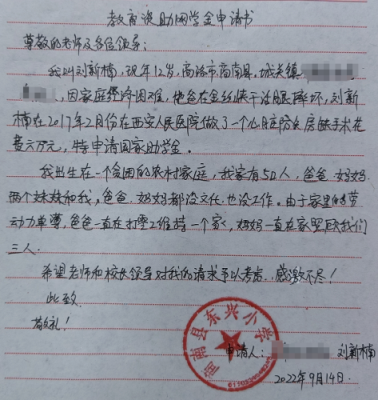 教育资助助学金申请书
尊敬的老师及各位领导:
我叫刘新楠,现年12岁,商洛市商南县.城关镇
,因家庭经济困难,他爸在金丝峡干活眼摔坏,刘新
楠在2017年2月份在西安人民医院做了一个心脏房长房缺手术花
费六万元,特申请国家助学金。
我出生在一个贫困的农村家庭,我家有5口人,爸爸.妈妈.
两个妹妹和我,爸爸.妈妈都没文化.也没工作。由于家里的劳
动力单薄,爸爸一直在打零工维持一个家,妈妈一直在家照顾我们
三人.
希望老师和校长领导对我的请求予以考虑.感激不尽!
此致
敬礼!
商南县东兴小学
申请人: 刘新楠
2022年9月14日.